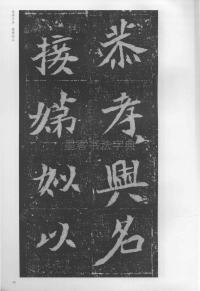 恭孝興名
接娣姒以
书法字典